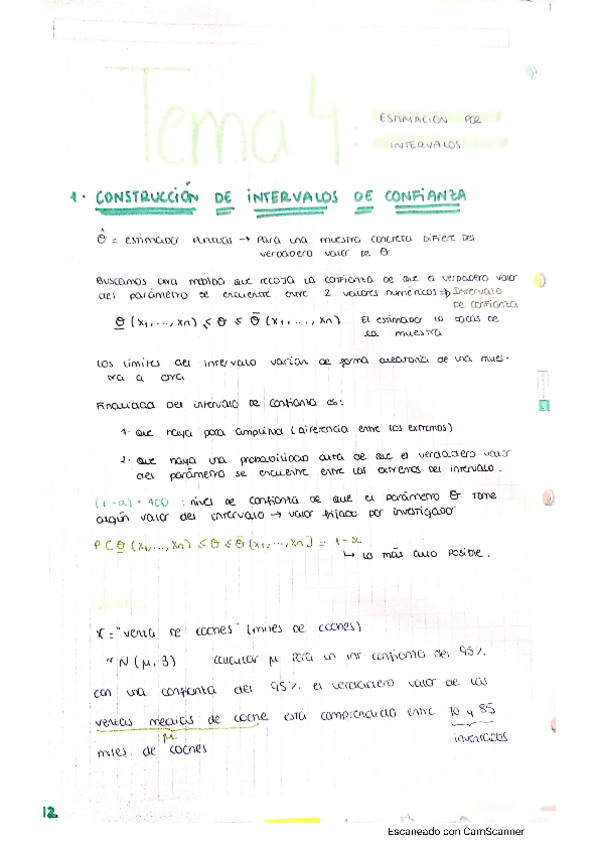 Tema 4:
ESTIMACIÓN POR
INTERVALOS
1. CONSTRUCCIÓN DE INTERVALOS DE CONFIANZA
θ̂ = estimador puntual → Para una muestra concreta difiere del
verdadero valor de θ
Buscamos una medida que recoja la confianza de que el verdadero valor
del parámetro se encuentre entre 2 valores numéricos ⇒ Intervalo
de confianza
θ̲ (x1, ..., xn) ≤ θ ≤ θ̄ (x1, ..., xn) El estimador lo sacas de
la muestra
Los límites del intervalo varían de forma aleatoria de una mues-
tra a otra
Finalidad del intervalo de confianza es:
1. que haya poca amplitud (diferencia entre los extremos)
2. que haya una probabilidad alta de que el verdadero valor
del parámetro se encuentre entre los extremos del intervalo.
(1-α) · 100 : nivel de confianza de que el parámetro θ tome
algún valor del intervalo → valor fijado por investigador
P [θ̲ (x1, ..., xn) ≤ θ ≤ θ̄ (x1, ..., xn)] = 1-α
↳ lo más alto posible.
X = "venta de coches" (miles de coches)
~ N (μ, 3) calcular μ para un int. confianza del 95%
con una confianza del 95% el verdadero valor de las
ventas medias de coche está comprendido entre 70 y 85
μ
miles de coches
12
Escaneado con CamScanner